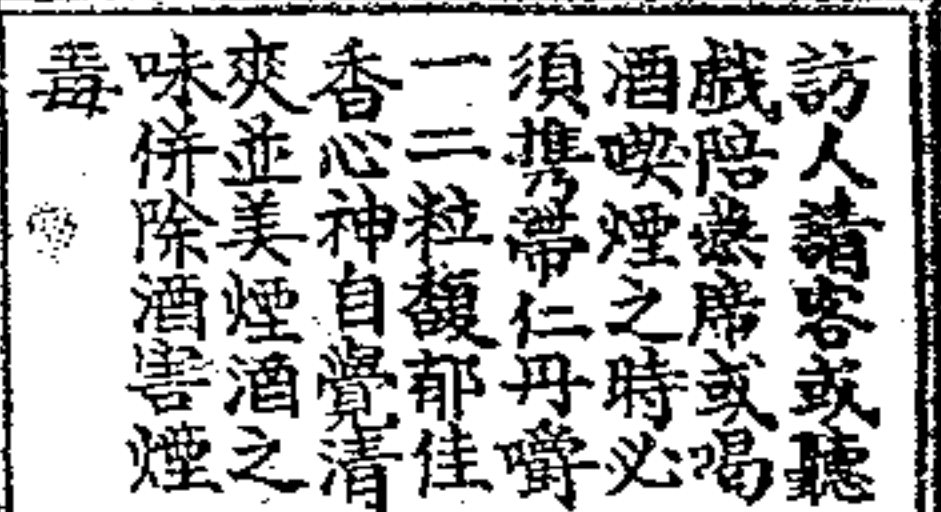 訪人請客或聽
戲陪讌席或喝
酒喫煙之時必
須携帶仁丹嚼
一二粒馥郁佳
香心神自覺清
爽並美煙酒之
味併除酒害煙
毒